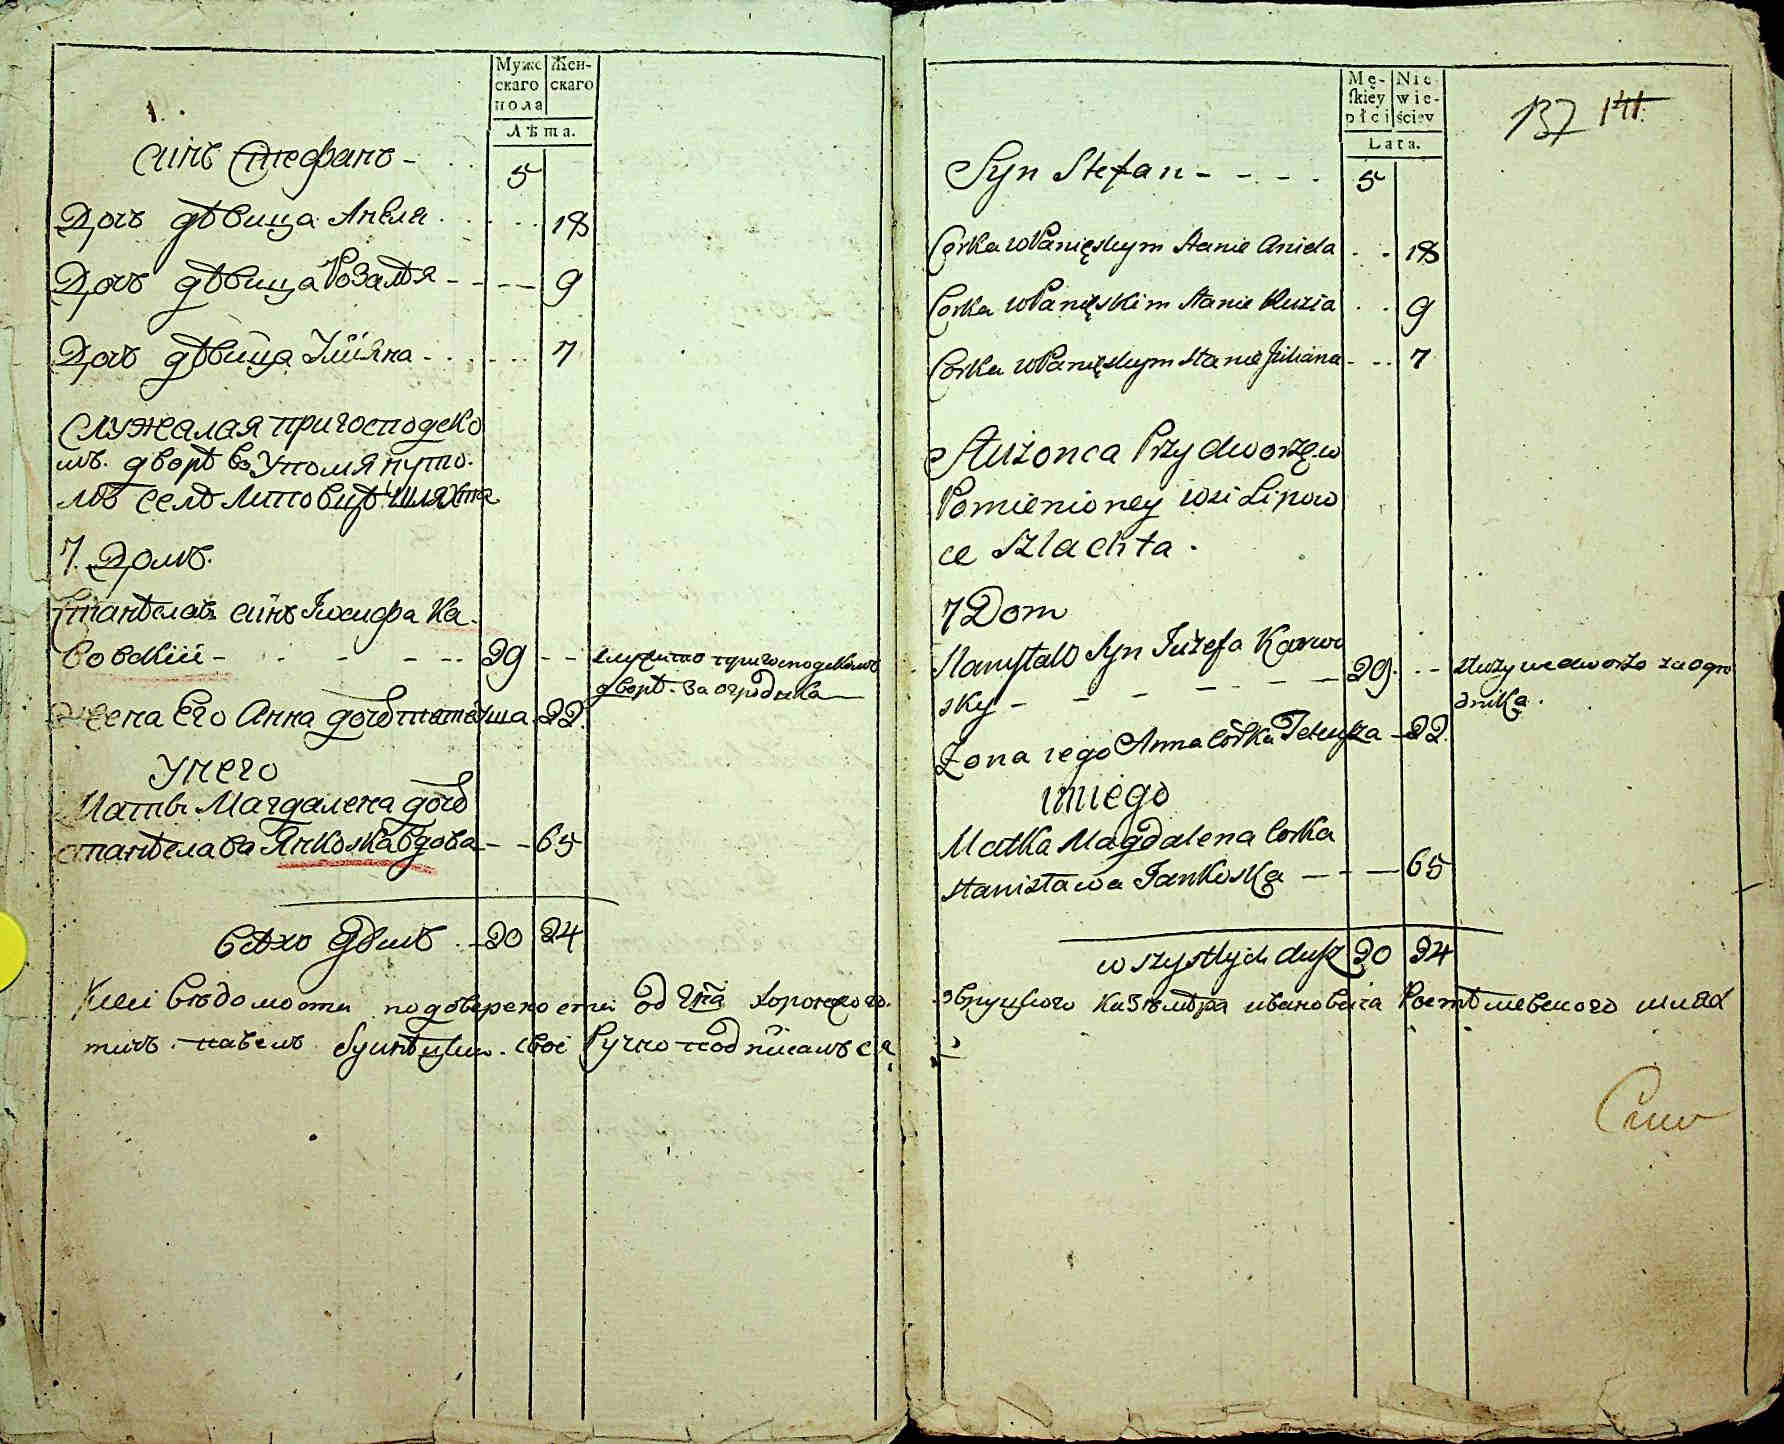 Муже
скаго
пола
Жен-
скаго
Лѣта.
1.
Синъ Стефанъ - 5
Дочъ дѣвица Анѣля 18
Дочъ дѣвица Розалѣя 9
Дочъ дѣвица Улiяна 7
Служалая пригосподско
мъ дворѣ во Упомянуто
мъ селѣ Липовцѣ шляхта
7. Домъ.
Станѣславъ синъ Иосифа Ка
вовскiй 29 служитъ пригосподскомъ
дворѣ за огродника
Жена Его Анна дочъ 22
Унего
Матъ Магдалена дочъ
станѣслава Янкоска вдова 65
Всѣхо Душъ 20 24
вѣдомости од Гна Хоронжого
павелъ своеРучно подписалъся
Mę-
skiey
płci
Nie
wie-
ściey
Lata.
137 141
Syn Stefan - - - - 5
Corka wPanięskym Stanie Aniela 18
Corka wPanięskim Stanie Ruzia 9
Corka wPanięskym Stanie Juliana 7
Służonca Przy dworzę w
Pomienioney wsi Lipow
ce Szlachta.
7 Dom
Stanysław Syn Juzefa Kawo
sky 29 służy wedworze za ogro
dnika.
Żona iego Anna Corka 22
uniego
Matka Magdalena Corka
Stanisława Jankoska 65
wszystkych dusz 20 24
Овруцкого Казѣмѣра ивановича шлях